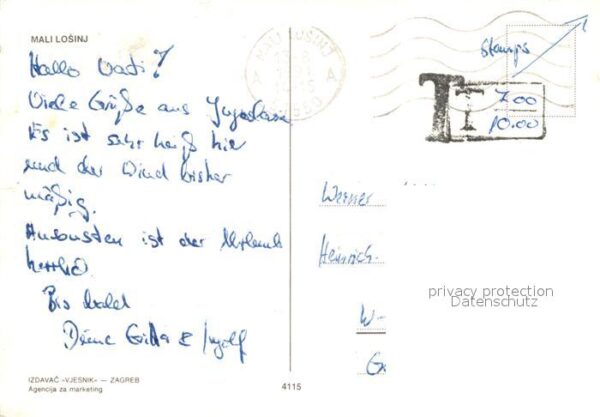 MALI LOŠINJ
Hallo Vati!
Viele Grüße aus Jugoslawien
Es ist sehr heiß hier
und der Wind bisher
mäßig.
Ansonsten ist der Urlaub
herrlich.
Bis bald
Deine Gitta &
IZDAVAČ «VJESNIK» — ZAGREB
Agencija za marketing
4115
MALI LOŠINJ
A A
Stamps
T
T 7.00
10.00
Werner
Heinrich-
W-
privacy protection
Datenschutz